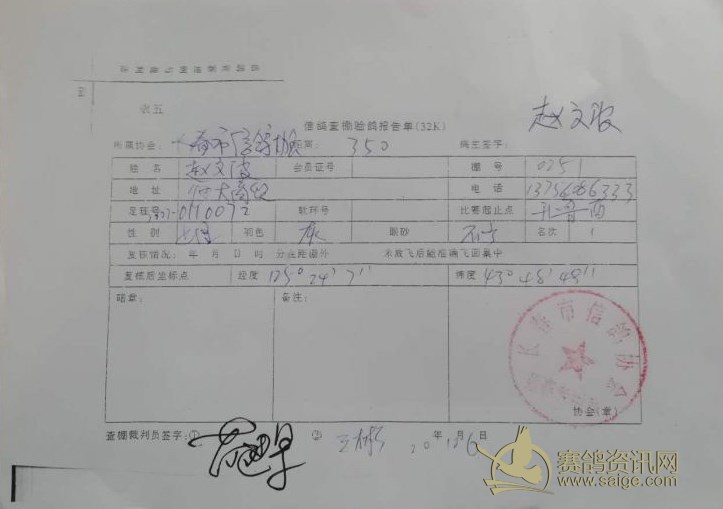 表五
信鸽查棚验鸽报告单(32K)
赵文波
所属协会: 长春市信鸽协会 距离: 350 鸽主签字:
姓名 赵文波 会员证号 棚号 0251
地址 电话
足环号 0110072 软环号 比赛起止点
性别 羽色 灰 眼砂 名次 1
复核情况: 年 月 日 时 分在距棚外 米放飞后能准确飞回巢中
复核后坐标点 经度 125° 24' 7" 纬度 43° 48' 48"
暗章: 备注:
长春市信鸽协会
协会(章)
查棚裁判员签字:① ② 王彬 20年10月6日
赛鸽资讯网
www.saige.com